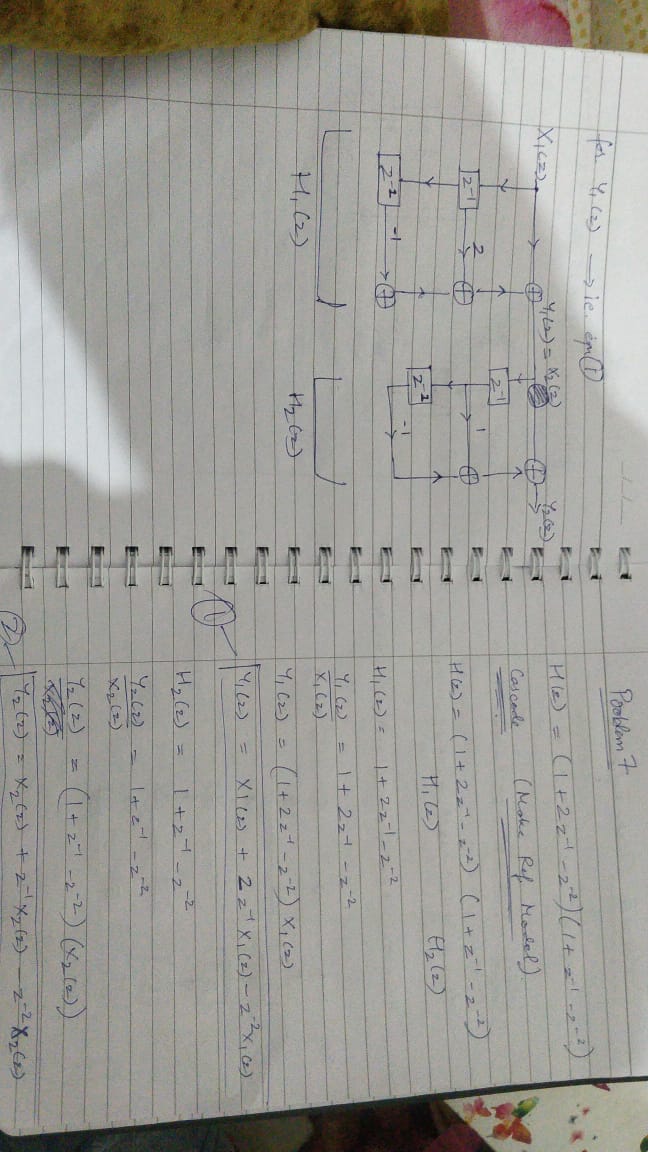 Problem 7
H(z) = (1 + 2z⁻¹ - z⁻²)(1 + z⁻¹ - z⁻²)
Cascade (Make Ref Model).
H(z) = (1 + 2z⁻¹ - z⁻²) (1 + z⁻¹ - z⁻²)
H₁(z) H₂(z)
H₁(z) = 1 + 2z⁻¹ - z⁻²
Y₁(z) / X₁(z) = 1 + 2z⁻¹ - z⁻²
Y₁(z) = (1 + 2z⁻¹ - z⁻²) X₁(z)
① Y₁(z) = X₁(z) + 2z⁻¹ X₁(z) - z⁻² X₁(z)
H₂(z) = 1 + z⁻¹ - z⁻²
Y₂(z) / X₂(z) = 1 + z⁻¹ - z⁻²
Y₂(z) = (1 + z⁻¹ - z⁻²) (X₂(z))
② Y₂(z) = X₂(z) + z⁻¹ X₂(z) - z⁻² X₂(z)
for Y₁(z) → ie eqn ①
X₁(z) Y₁(z) = X₂(z) Y₂(z)
z⁻¹ 2 z⁻¹ 1
z⁻² -1 z⁻² -1
H₁(z) H₂(z)